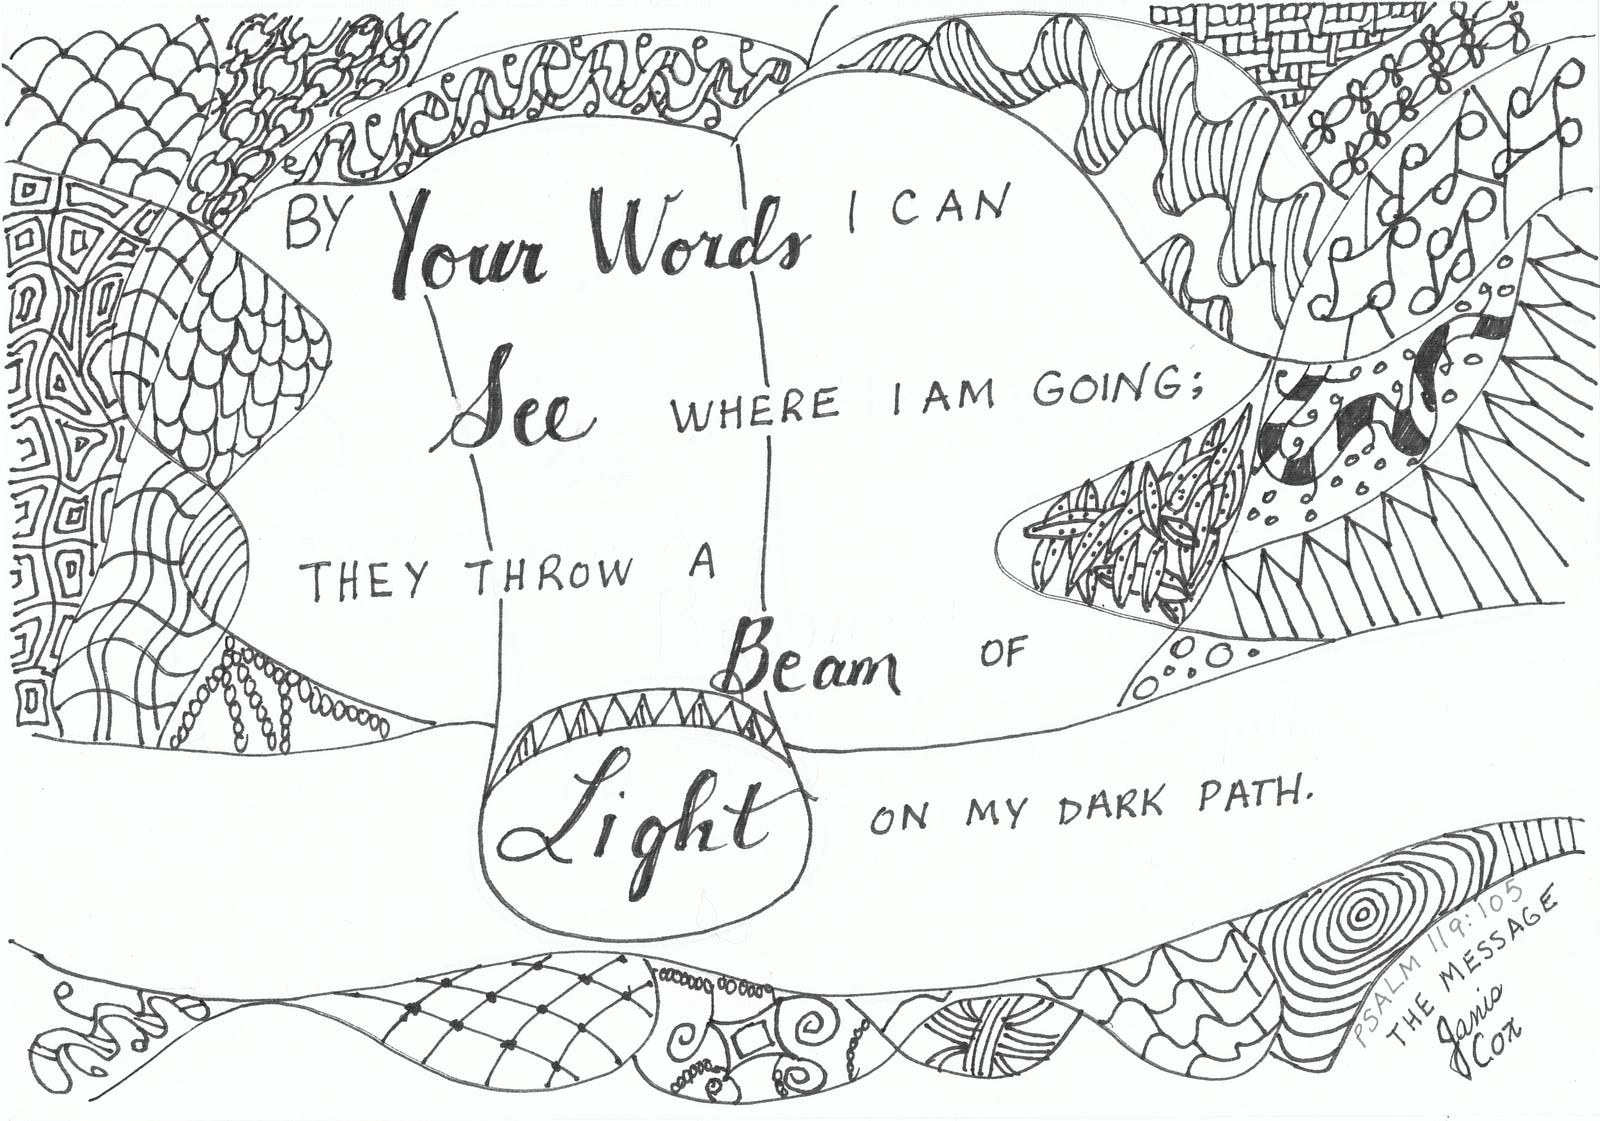 BY Your Words I CAN
See WHERE I AM GOING;
THEY THROW A
Beam OF
Light ON MY DARK PATH.
PSALM 119:105
THE MESSAGE
Janis
Cox